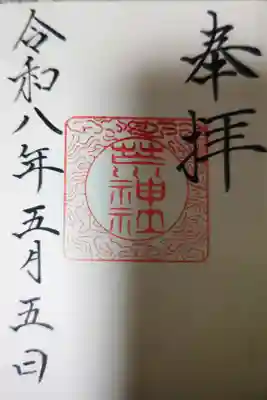 奉拝
神社
令和八年五月五日